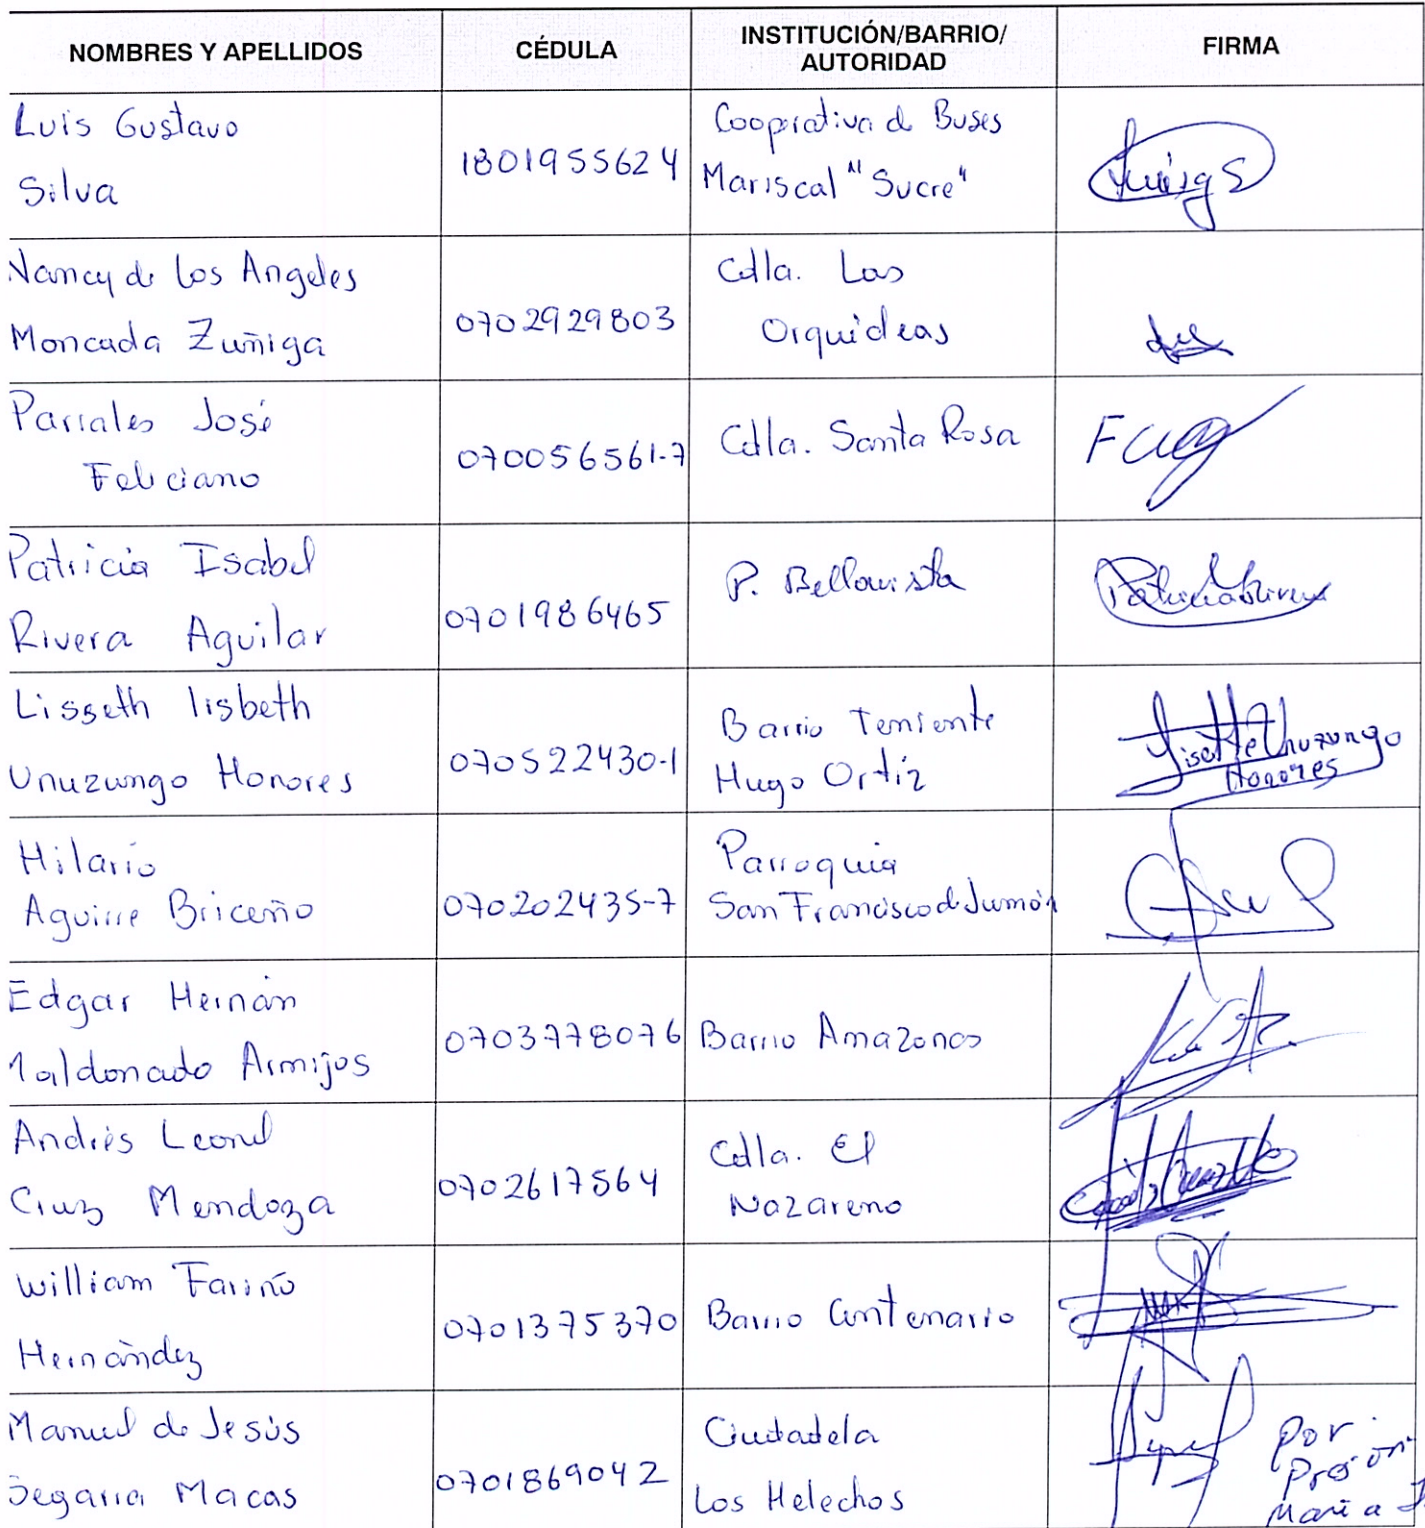 NOMBRES Y APELLIDOS CÉDULA INSTITUCIÓN/BARRIO/ AUTORIDAD FIRMA
Luis Gustavo
Silva
1801955624
Cooperativa de Buses
Mariscal "Sucre"
Nancy de los Angeles
Moncada Zuñiga
0702929803
Cdla. Las
Orquídeas
Parrales José
Feliciano
070056561-7
Cdla. Santa Rosa
Patricia Isabel
Rivera Aguilar
0701986465
P. Bellavista
Patricia Rivera
Lisseth lisbeth
Unuzungo Honores
070522430-1
Barrio Teniente
Hugo Ortíz
Unuzungo
Honores
Hilario
Aguirre Briceño
070202435-7
Parroquia
San Francisco de Jumón
Edgar Hernán
Maldonado Armijos
0703778076
Barrio Amazonas
Andrés Leonel
Cruz Mendoza
0702617564
Cdla. El
Nazareno
William Fariño
Hernández
0701375370
Barrio Centenario
Manuel de Jesús
Segarra Macas
0701869042
Ciudadela
Los Helechos
Por